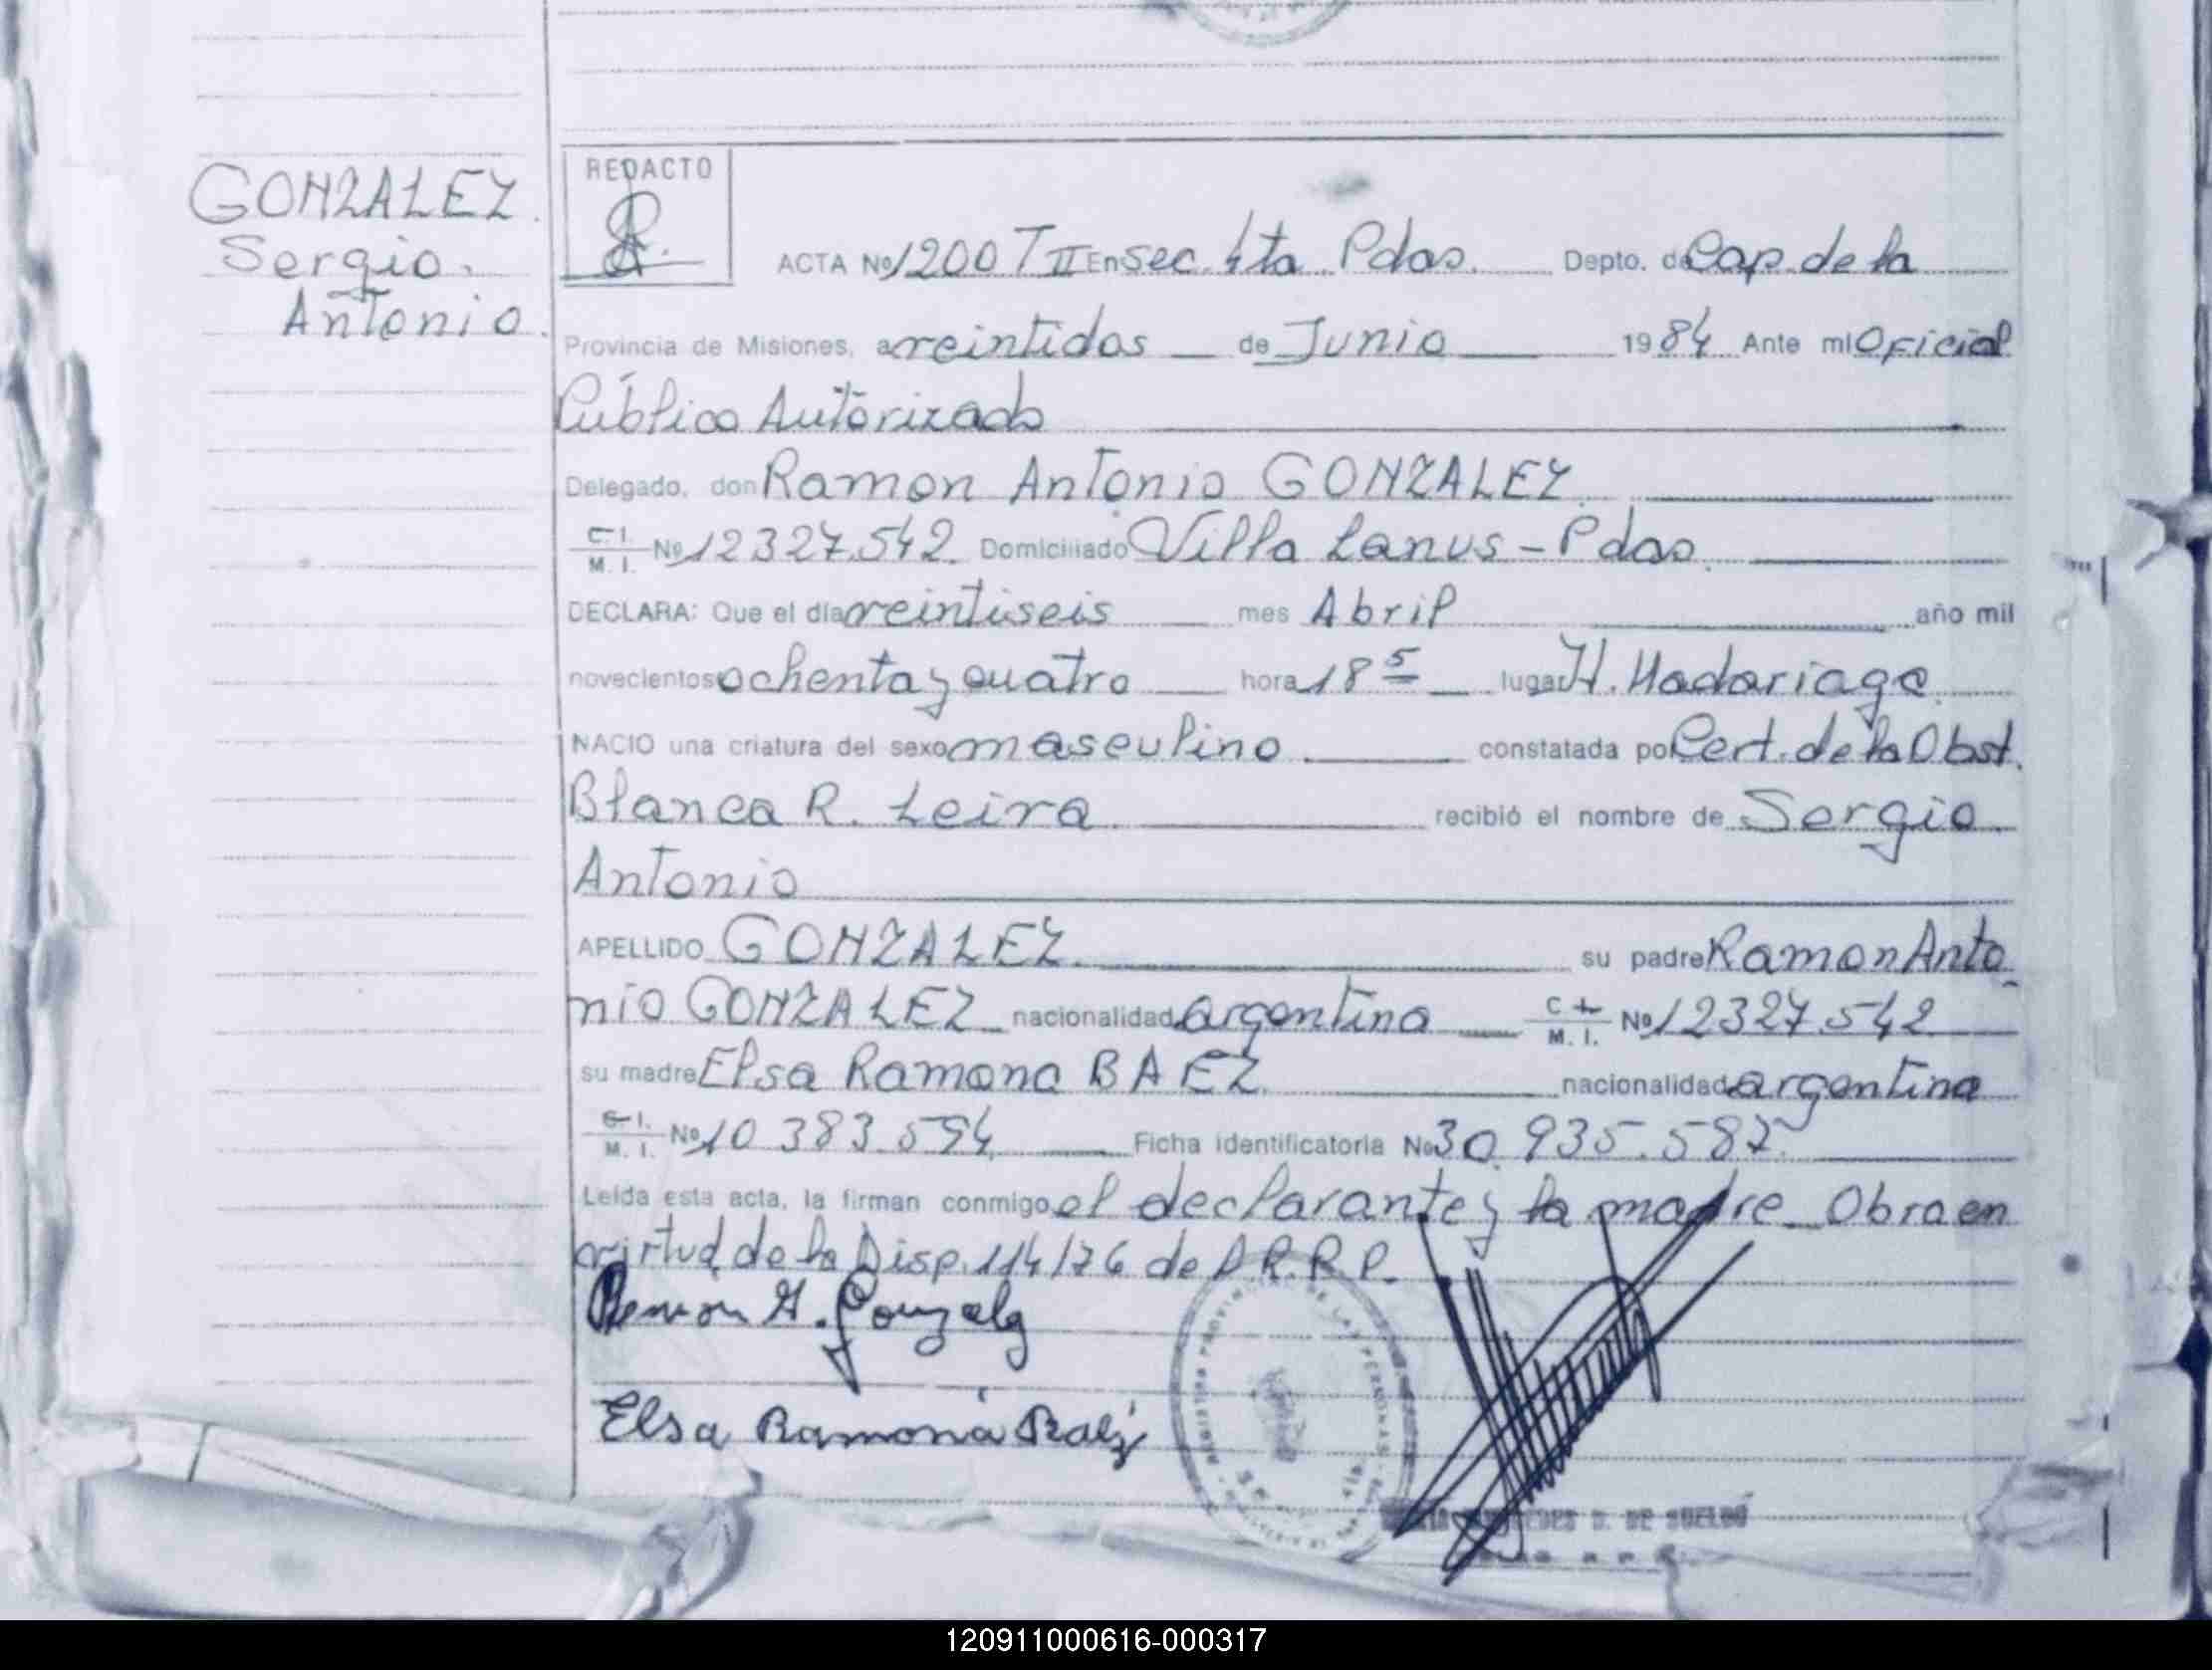 GONZALEZ
Sergio
Antonio.
REDACTO
ACTA Nº 1200 T II En Sec. 4ta Pdas. Depto. de Cap. de la
Provincia de Misiones, a veintidos de Junio 1984 Ante mí Oficial
Público Autorizado
Delegado, don Ramon Antonio GONZALEZ.
C. I. M. I. Nº 12327.542. Domiciliado Villa Lanus - Pdas.
DECLARA: Que el día veintiseis mes Abril año mil
novecientos ochenta y cuatro hora 18 5 lugar H. Madariaga
NACIO una criatura del sexo masculino constatada por Cert. de la Obst.
Blanca R. Leira recibió el nombre de Sergio
Antonio
APELLIDO GONZALEZ. su padre Ramon Anto
nio GONZALEZ nacionalidad argentina C. I. M. I. Nº 12327.542
su madre Elsa Ramona BAEZ nacionalidad argentina
C. I. M. I. Nº 10.383.594 Ficha identificatoria Nº 30.935.587.
Leída esta acta, la firman conmigo el declarante y la madre. Obra en
virtud de la Disp. 114/76 de D.R.R.P.
Ramon A. Gonzalez
Elsa Ramona Baez
D. DE SUELDO
120911000616-000317